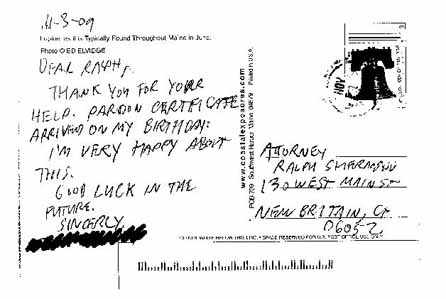 11-3-09
Lupine as it is Typically Found Throughout Maine in June.
Photo © ED ELVIDGE
DEAR RALPH,
THANK YOU FOR YOUR
HELP. PARDON CERTIFICATE
ARRIVED ON MY BIRTHDAY.
I'M VERY HAPPY ABOUT
THIS.
GOOD LUCK IN THE
FUTURE.
SINCERLY
www.coastalexposures.com
Printed in U.S.A.
POB 709 Southwest Harbor Maine 04679
NOV
ATTORNEY
RALPH SHERMAN
130 WEST MAIN ST
NEW BRITAIN, CT
06052
SPACE RESERVED FOR U.S. POST OFFICE USE ONLY